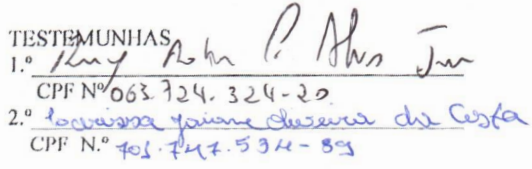 TESTEMUNHAS
1.º Ruy P. Alves
CPF Nº 063.724.324-20
2.º Larissa Jaiane Oliveira da Costa
CPF N.º 701.747.534-89